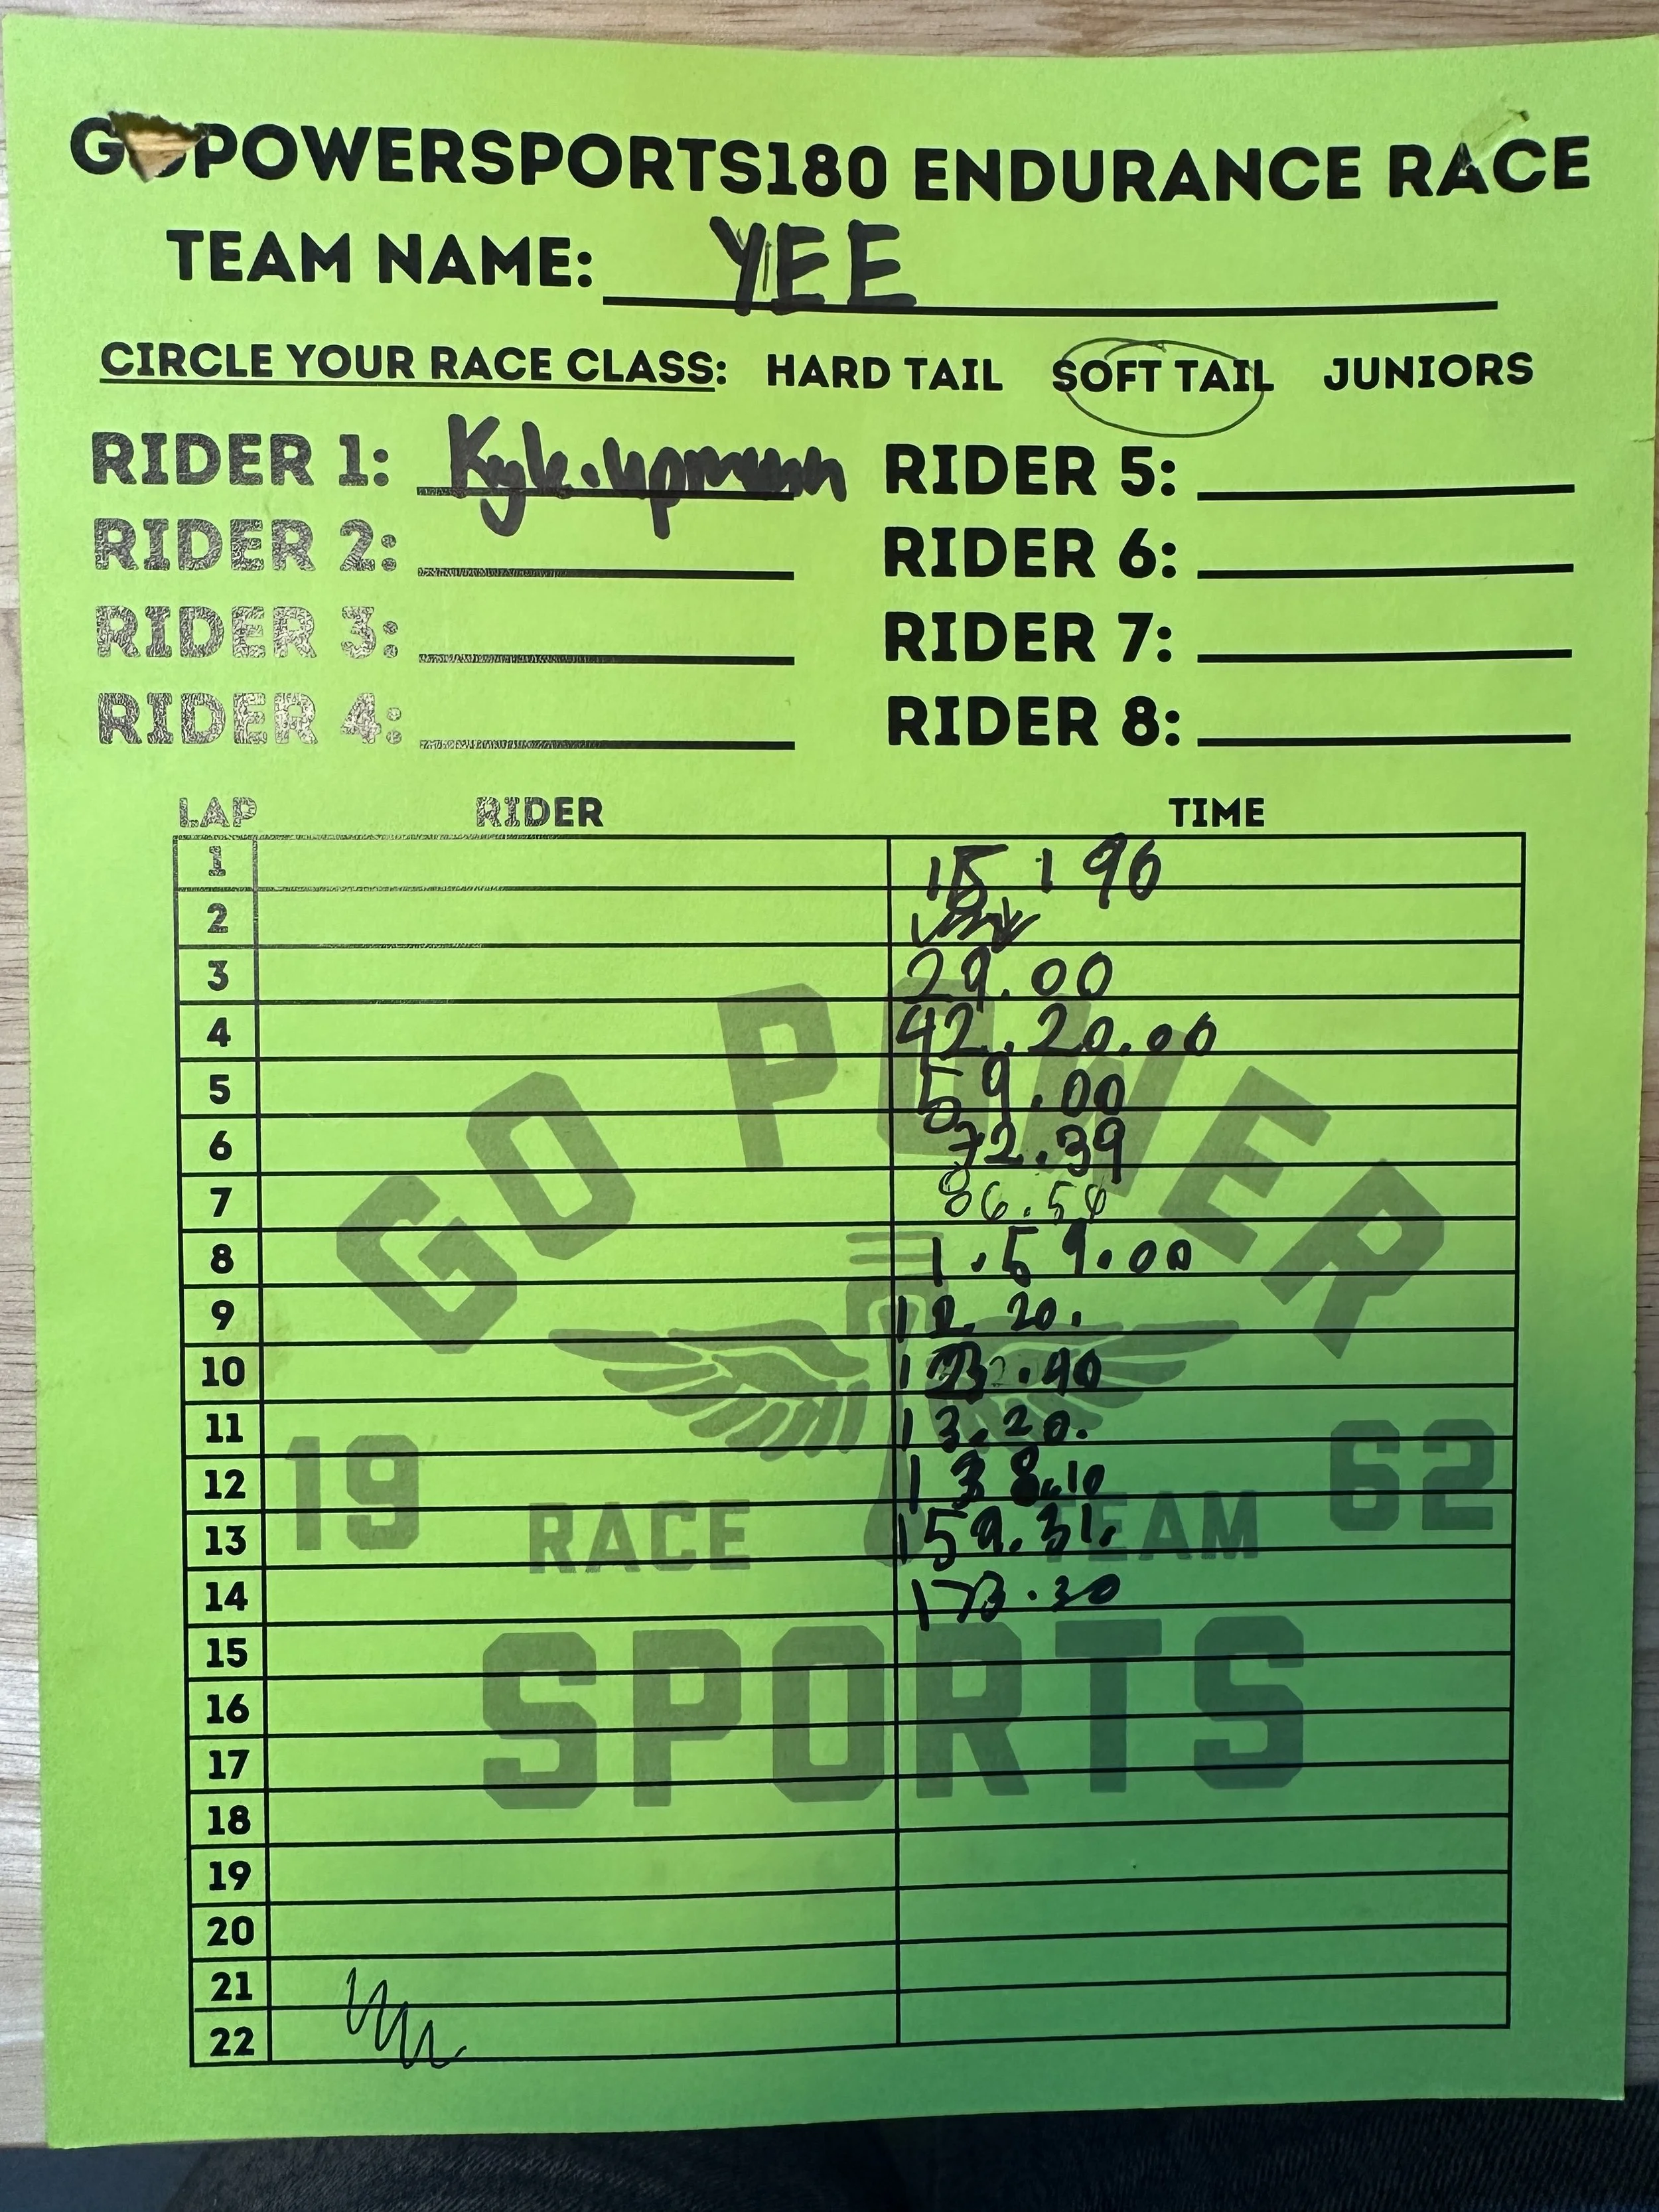 GOPOWERSPORTS180 ENDURANCE RACE
TEAM NAME: YEE
CIRCLE YOUR RACE CLASS: HARD TAIL SOFT TAIL JUNIORS
RIDER 1: Kyle RIDER 5:
RIDER 2: RIDER 6:
RIDER 3: RIDER 7:
RIDER 4: RIDER 8:
LAP RIDER TIME
1 15 1 90
2
3 29.00
4 42.20.00
5 59.00
6 72.39
7 86.56
8 1.59.00
9 20.
10 .40
11 13.20.
12 138.10
13 159.31.
14 173.30
15
16
17
18
19
20
21
22
GO POWER
19 62
RACE TEAM
SPORTS